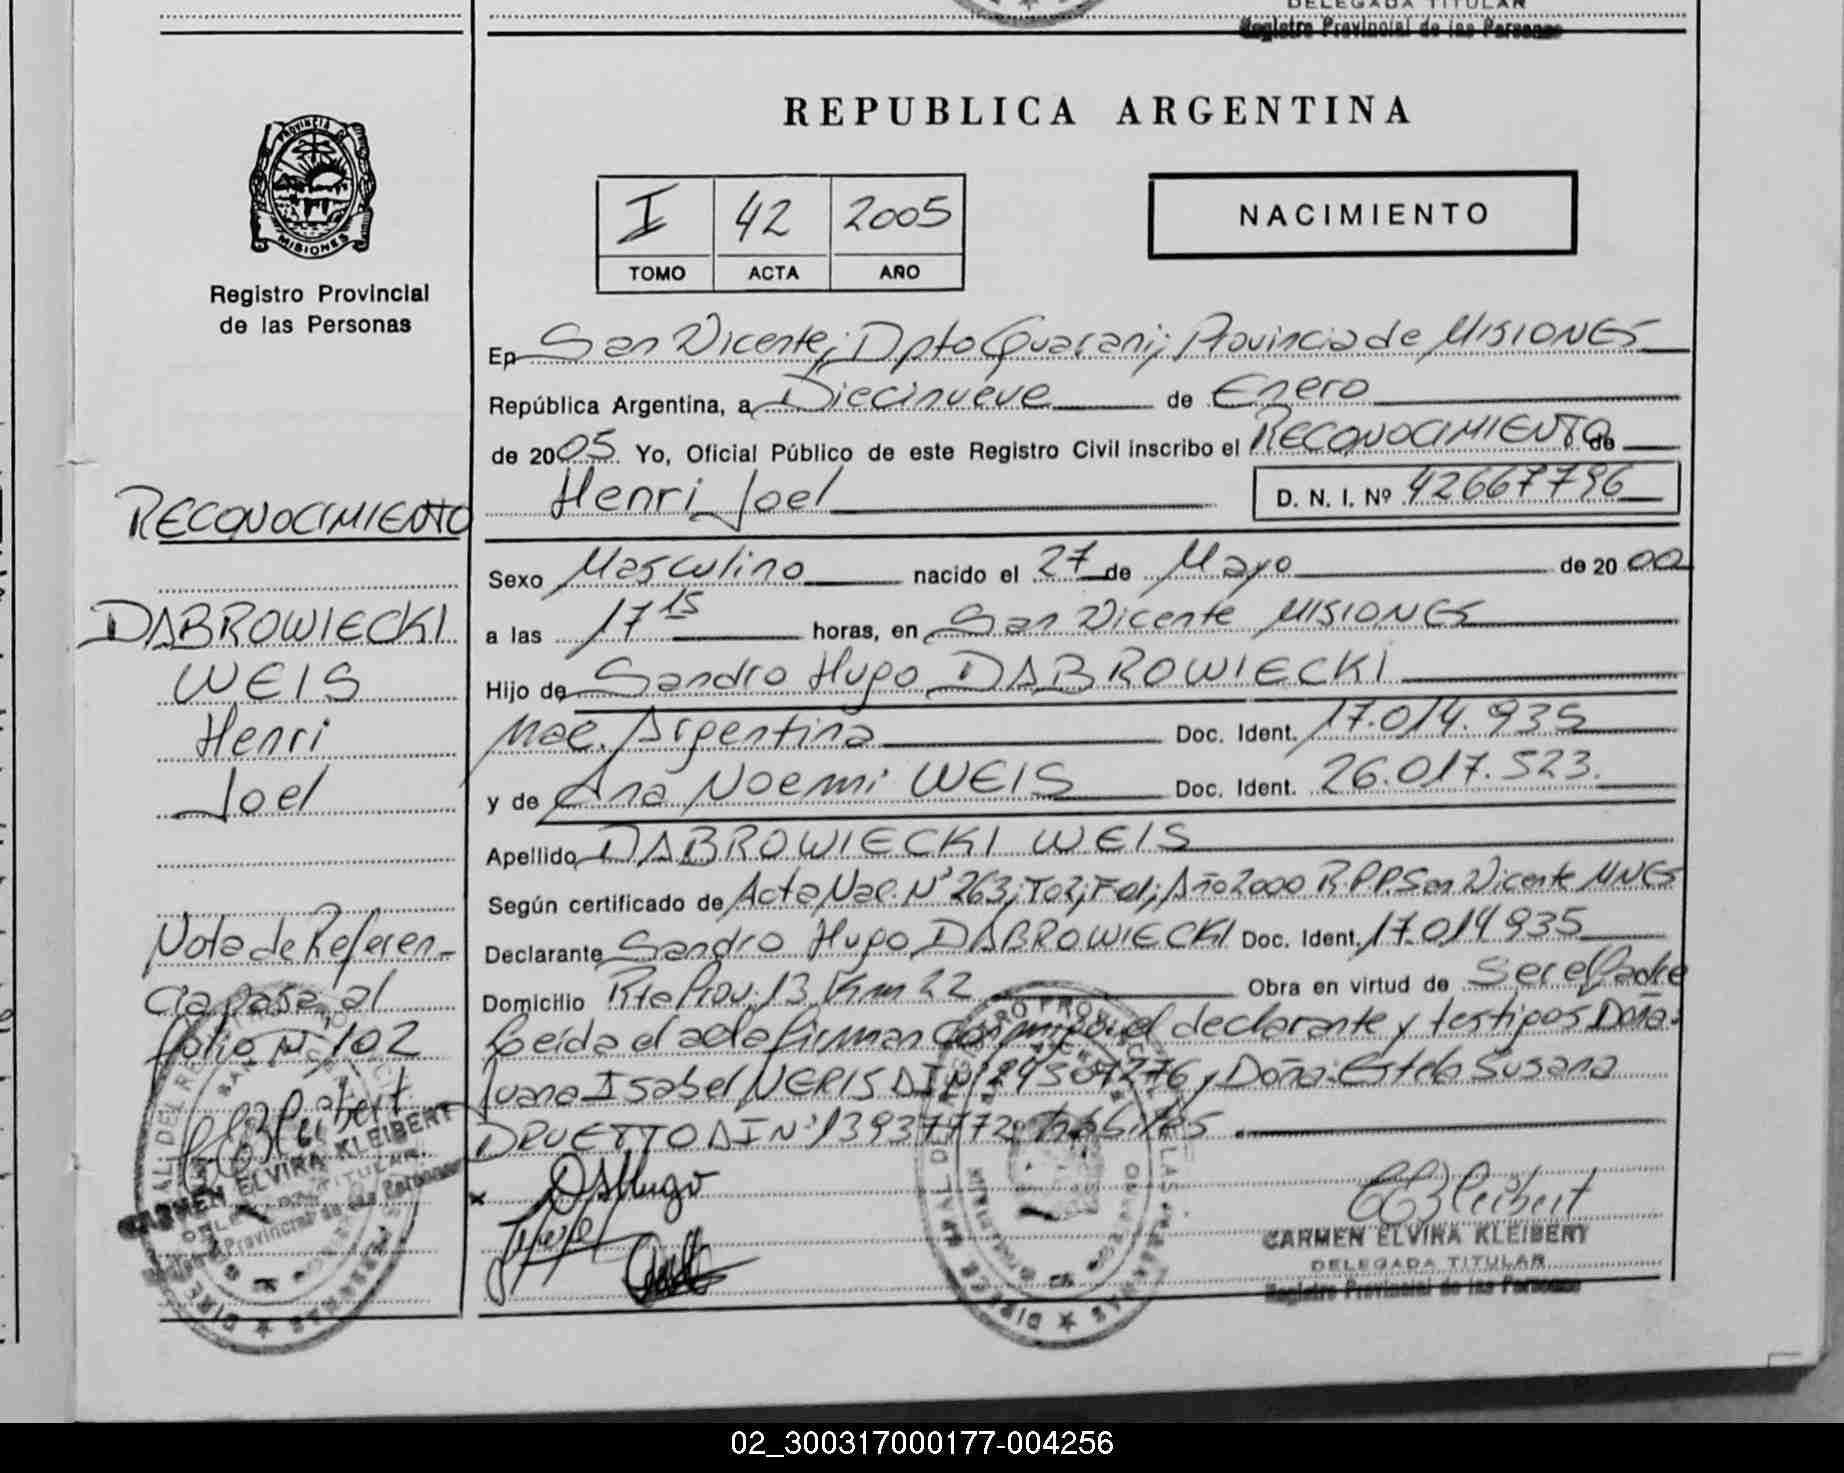 DELEGADA TITULAR
Registro Provincial de las Personas
PROVINCIA DE
MISIONES
Registro Provincial
de las Personas
REPUBLICA ARGENTINA
I 42 2005
TOMO ACTA AÑO
NACIMIENTO
En San Vicente; Dpto Guarani; Provincia de MISIONES
República Argentina, a Diecinueve de Enero
de 2005 Yo, Oficial Público de este Registro Civil inscribo el RECONOCIMIENTO de
Henri Joel D. N. I. Nº 42667796
RECONOCIMIENTO
DABROWIECKI
WEIS
Henri
Joel
Nota de Referen-
cia pasa al
folio Nº 102
CARMEN ELVIRA KLEIBERT
DELEGADA TITULAR
Registro Provincial de las Personas
Sexo Masculino nacido el 27 de Mayo de 2000
a las 17 15 horas, en San Vicente MISIONES
Hijo de Sandro Hugo DABROWIECKI
Nac. Argentina Doc. Ident. 17.014.935
y de Ana Noemi WEIS Doc. Ident. 26.017.523.
Apellido DABROWIECKI WEIS
Según certificado de Acta Nac. Nº 263; Año 2000 R.P.P. San Vicente MNES
Declarante Sandro Hugo DABROWIECKI Doc. Ident. 17.014935
Domicilio Rta Prov. 13 Km 22 Obra en virtud de Ser el Padre
Leída el acta firman conmigo el declarante y testigos Doña:
Juana Isabel NERIS DI Nº y Doña: Estela Susana
DRUETTO DI Nº 13937772 hábiles
DS Hugo
CARMEN ELVIRA KLEIBERT
DELEGADA TITULAR
Registro Provincial de las Personas
02_300317000177-004256